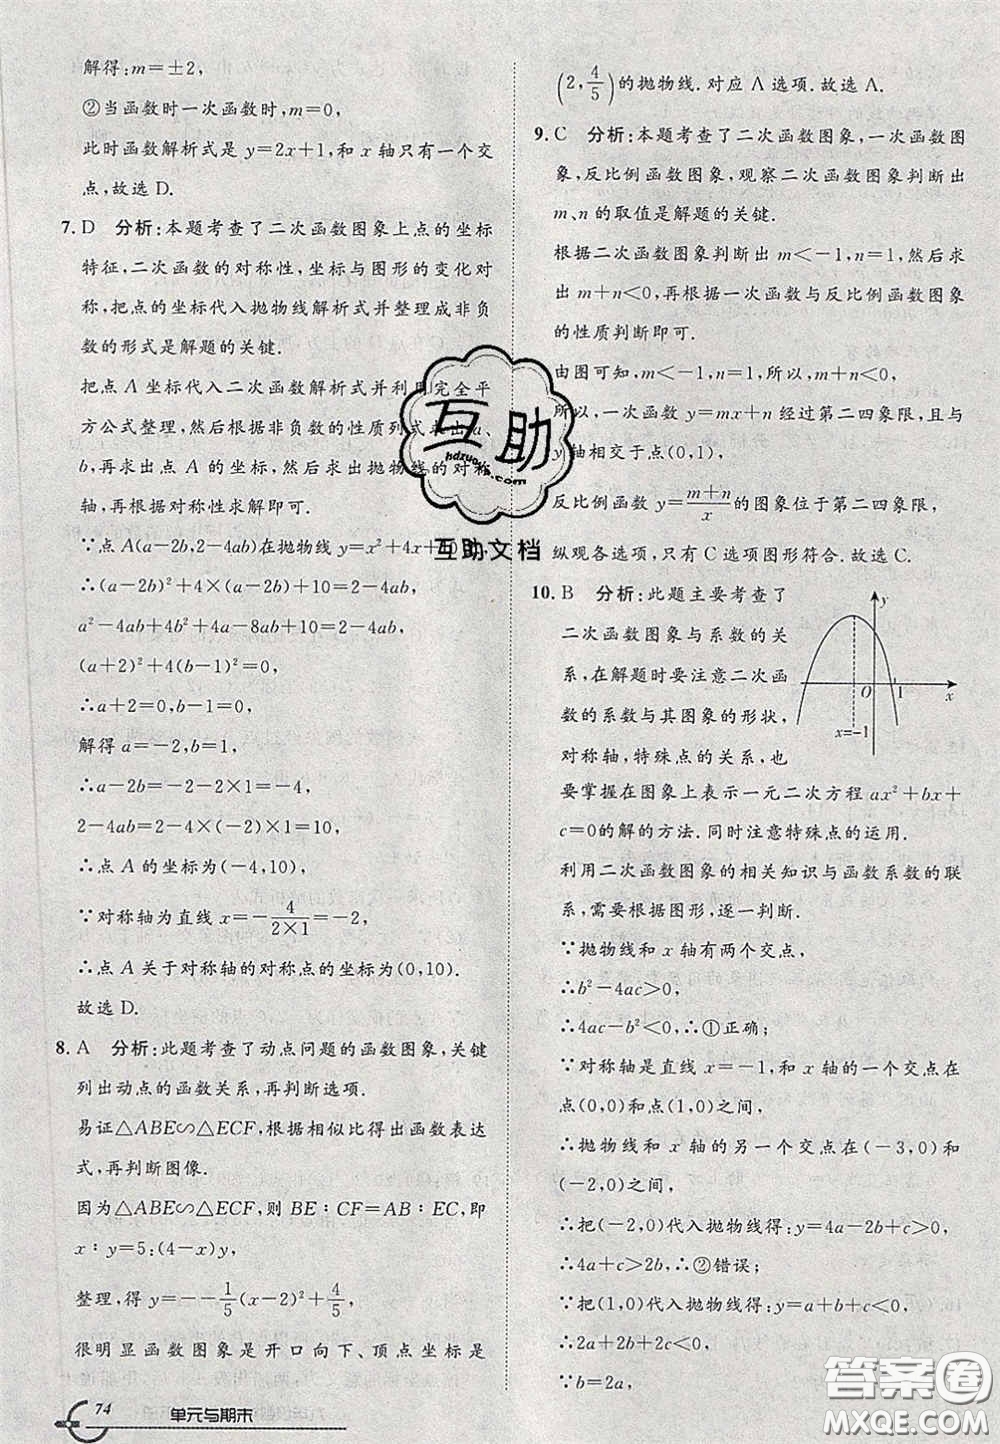 解得:m=±2,
②当函数时一次函数时,m=0,
此时函数解析式是 y=2x+1,和 x 轴只有一个交
点,故选 D.
7. D 分析:本题考查了二次函数图象上点的坐标
特征,二次函数的对称性,坐标与图形的变化对
称,把点的坐标代入抛物线解析式并整理成非负
数的形式是解题的关键.
把点 A 坐标代入二次函数解析式并利用完全平
方公式整理,然后根据非负数的性质列式求出 a、
b,再求出点 A 的坐标,然后求出抛物线的对称
轴,再根据对称性求解即可.
∵点 A(a-2b,2-4ab)在抛物线 y=x²+4x+10
∴(a-2b)²+4×(a-2b)+10=2-4ab,
a²-4ab+4b²+4a-8ab+10=2-4ab,
(a+2)²+4(b-1)²=0,
∴a+2=0,b-1=0,
解得 a=-2,b=1,
∴a-2b=-2-2×1=-4,
2-4ab=2-4×(-2)×1=10,
∴点 A 的坐标为(-4,10).
∵对称轴为直线 x=-4/(2×1)=-2,
∴点 A 关于对称轴的对称点的坐标为(0,10).
故选 D.
8. A 分析:此题考查了动点问题的函数图象,关键
列出动点的函数关系,再判断选项.
易证△ABE∽△ECF,根据相似比得出函数表达
式,再判断图像.
因为△ABE∽△ECF,则 BE∶CF=AB∶EC,即
x∶y=5:(4-x)y,
整理,得 y=-1/5(x-2)²+4/5,
很明显函数图象是开口向下、顶点坐标是
74 单元与期末
(2,4/5)的抛物线.对应 A 选项.故选 A.
9. C 分析:本题考查了二次函数图象,一次函数图
象,反比例函数图象,观察二次函数图象判断出
m、n 的取值是解题的关键.
根据二次函数图象判断出 m<-1,n=1,然后求
出 m+n<0,再根据一次函数与反比例函数图象
的性质判断即可.
由图可知,m<-1,n=1,所以 m+n<0,
所以,一次函数 y=mx+n 经过第二四象限,且与
y 轴相交于点(0,1),
反比例函数 y=(m+n)/x 的图象位于第二四象限,
纵观各选项,只有 C 选项图形符合.故选 C.
10. B 分析:此题主要考查了
二次函数图象与系数的关
系,在解题时要注意二次函
数的系数与其图象的形状,
对称轴,特殊点的关系,也
要掌握在图象上表示一元二次方程 ax²+bx+
c=0的解的方法.同时注意特殊点的运用.
利用二次函数图象的相关知识与函数系数的联
系,需要根据图形,逐一判断.
∵抛物线和 x 轴有两个交点,
∴b²-4ac>0,
∴4ac-b²<0,∴①正确;
∵对称轴是直线 x=-1,和 x 轴的一个交点在
点(0,0)和点(1,0)之间,
∴抛物线和 x 轴的另一个交点在(-3,0)和
(-2,0)之间,
∴把(-2,0)代入抛物线得:y=4a-2b+c>0,
∴4a+c>2b,∴②错误;
∵把(1,0)代入抛物线得:y=a+b+c<0,
∴2a+2b+2c<0,
∵b=2a,
y
O
1
x
x=-1
互助
hdzuoye.com
互助文档
答案圈
MXQE.COM